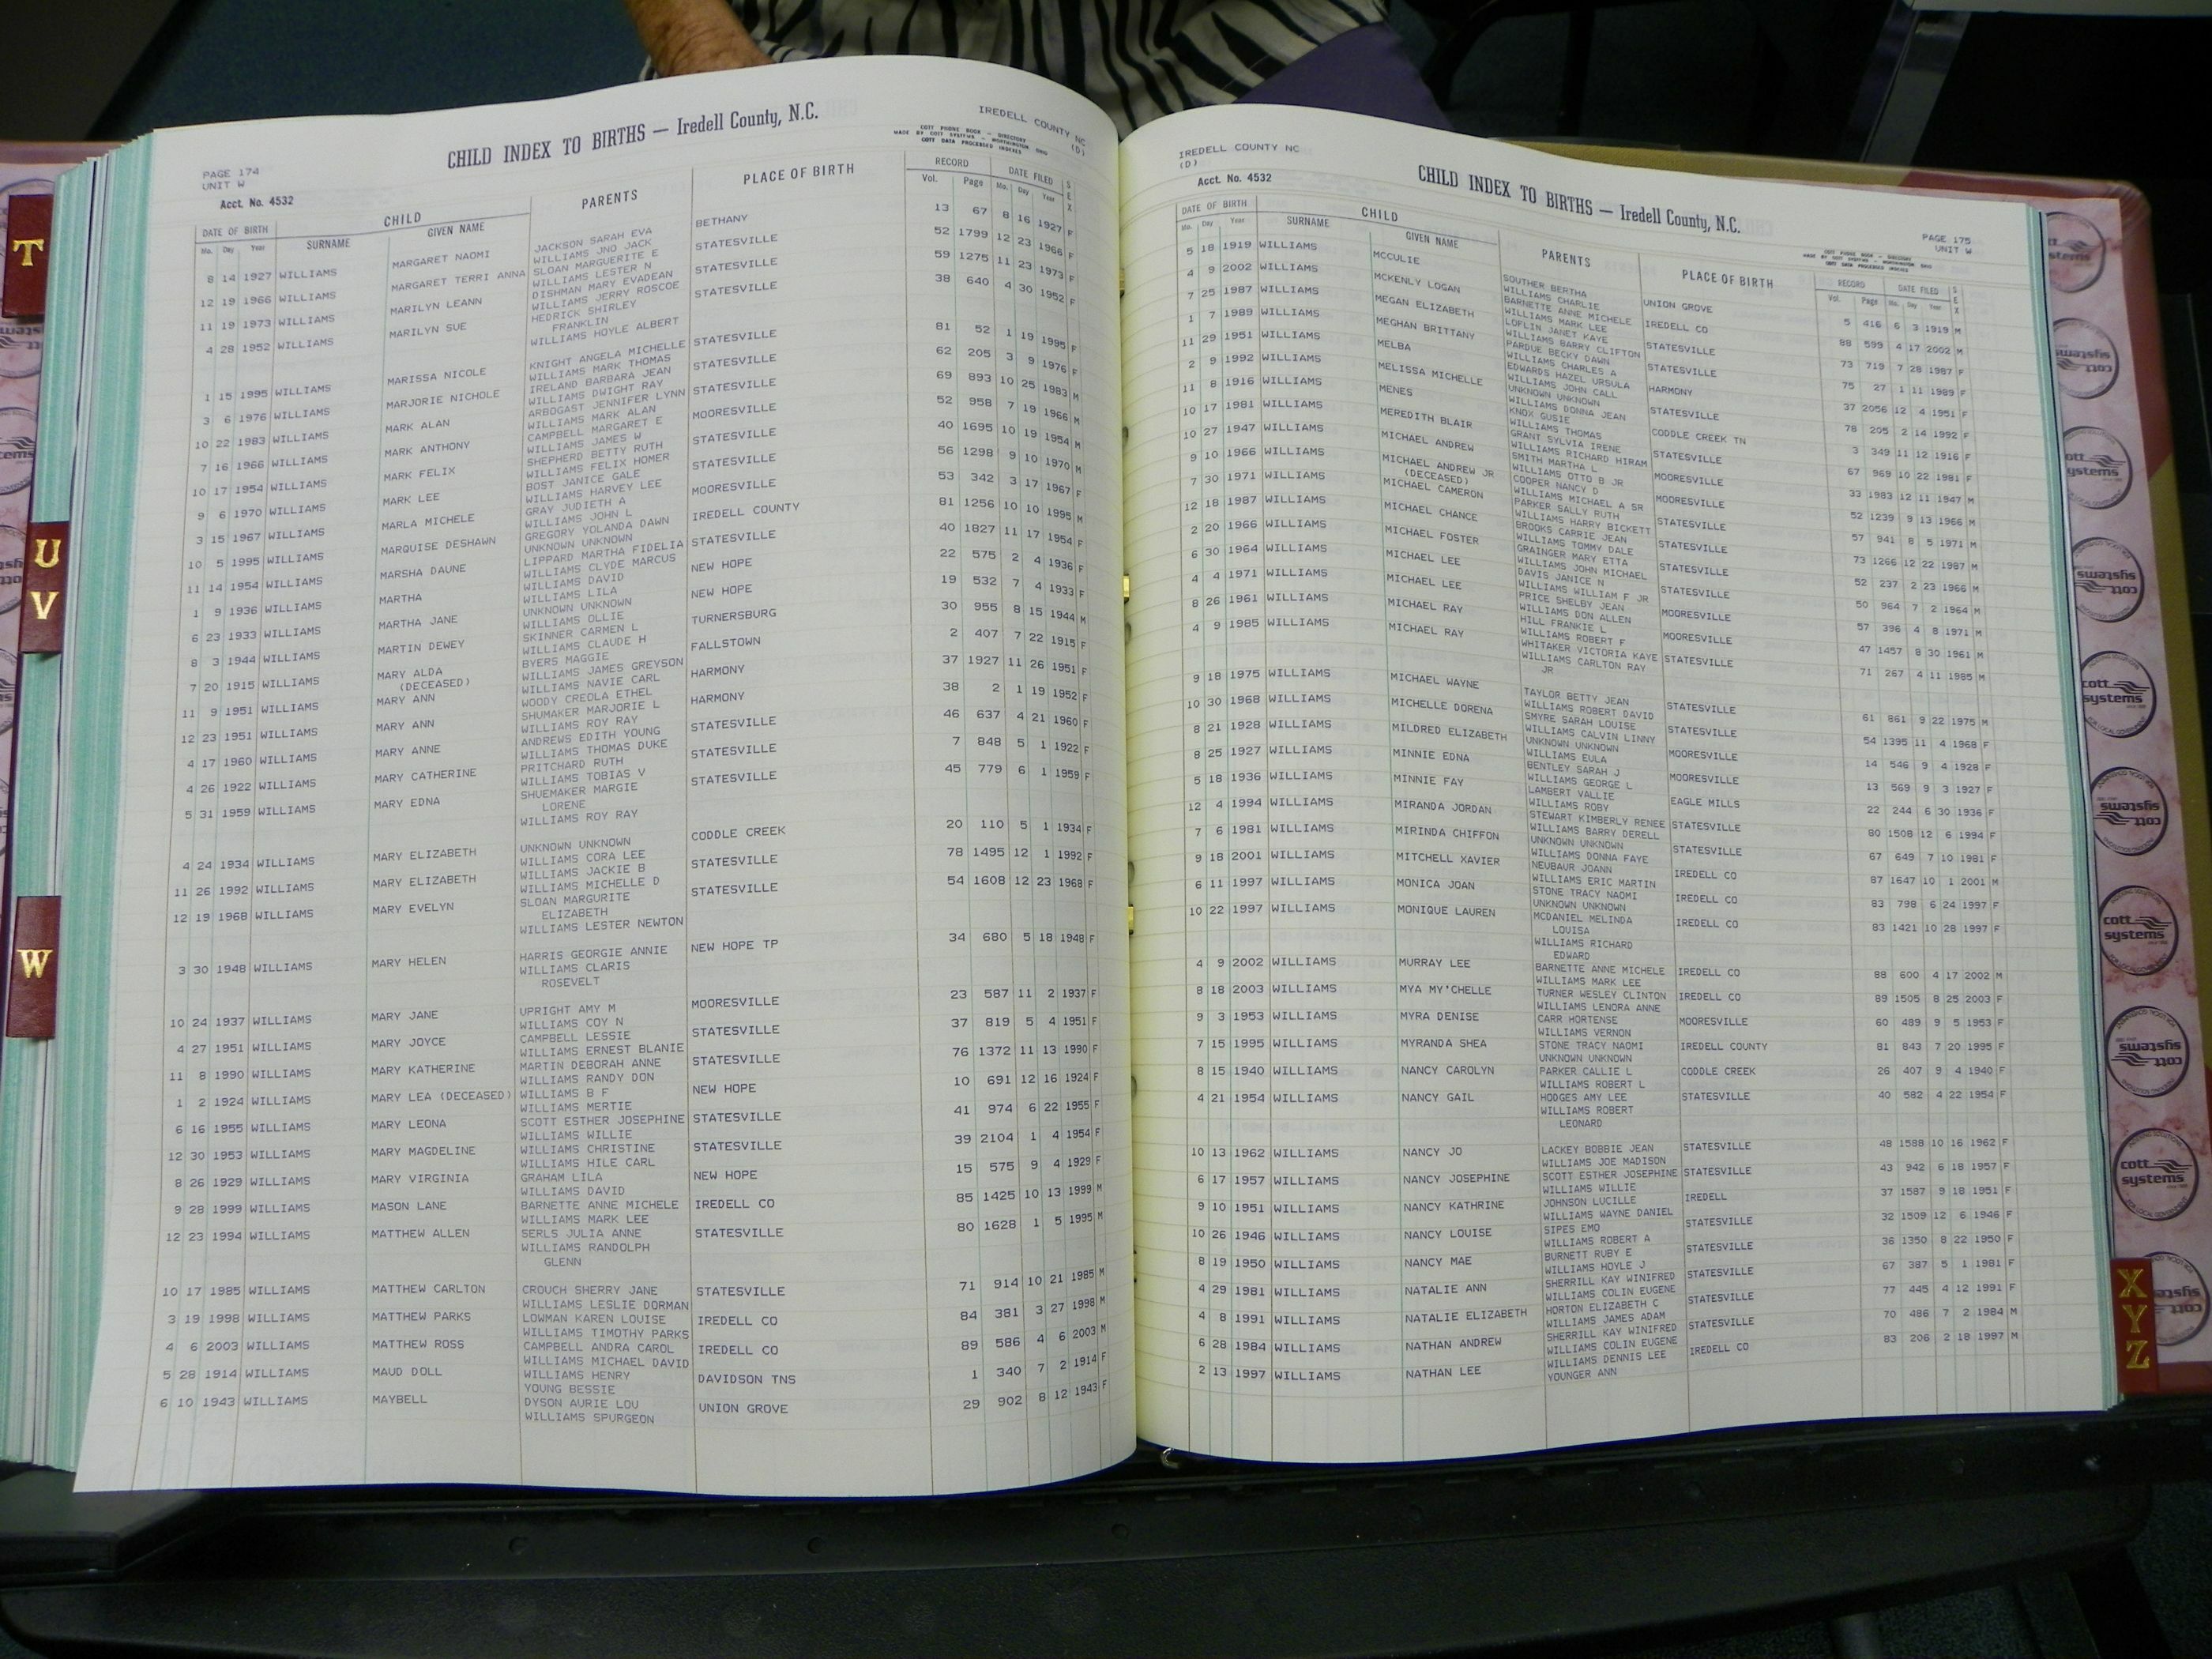 PAGE 174
UNIT W
Acct. No. 4532
CHILD INDEX TO BIRTHS — Iredell County, N.C.
IREDELL COUNTY NC
(D)
COTT PHONE BOOK - DIRECTORY
MADE BY COTT SYSTEMS - WORTHINGTON OHIO
COTT DATA PROCESSED INDEXES
DATE OF BIRTH CHILD PARENTS PLACE OF BIRTH RECORD DATE FILED SEX
Mo. Day Year SURNAME GIVEN NAME Vol. Page Mo. Day Year
8 14 1927 WILLIAMS MARGARET NAOMI JACKSON SARAH EVA BETHANY 13 67 8 16 1927 F
WILLIAMS JNO JACK
12 19 1966 WILLIAMS MARGARET TERRI ANNA SLOAN MARGUERITE E STATESVILLE 52 1799 12 23 1966 F
WILLIAMS LESTER N
11 19 1973 WILLIAMS MARILYN LEANN DISHMAN MARY EVADEAN STATESVILLE 59 1275 11 23 1973 F
WILLIAMS JERRY ROSCOE
4 28 1952 WILLIAMS MARILYN SUE HEDRICK SHIRLEY STATESVILLE 38 640 4 30 1952 F
FRANKLIN
WILLIAMS HOYLE ALBERT
1 15 1995 WILLIAMS MARISSA NICOLE KNIGHT ANGELA MICHELLE STATESVILLE 81 52 1 19 1995 F
WILLIAMS MARK THOMAS
3 6 1976 WILLIAMS MARJORIE NICHOLE IRELAND BARBARA JEAN STATESVILLE 62 205 3 9 1976 F
WILLIAMS DWIGHT RAY
10 22 1983 WILLIAMS MARK ALAN ARBOGAST JENNIFER LYNN STATESVILLE 69 893 10 25 1983 M
WILLIAMS MARK ALAN
7 16 1966 WILLIAMS MARK ANTHONY CAMPBELL MARGARET E MOORESVILLE 52 958 7 19 1966 M
WILLIAMS JAMES W
10 17 1954 WILLIAMS MARK FELIX SHEPHERD BETTY RUTH STATESVILLE 40 1695 10 19 1954 M
WILLIAMS FELIX HOMER
9 6 1970 WILLIAMS MARK LEE BOST JANICE GALE STATESVILLE 56 1298 9 10 1970 M
WILLIAMS HARVEY LEE
3 15 1967 WILLIAMS MARLA MICHELE GRAY JUDIETH A MOORESVILLE 53 342 3 17 1967 F
WILLIAMS JOHN L
10 5 1995 WILLIAMS MARQUISE DESHAWN GREGORY YOLANDA DAWN IREDELL COUNTY 81 1256 10 10 1995 M
UNKNOWN UNKNOWN
11 14 1954 WILLIAMS MARSHA DAUNE LIPPARD MARTHA FIDELIA STATESVILLE 40 1827 11 17 1954 F
WILLIAMS CLYDE MARCUS
1 9 1936 WILLIAMS MARTHA WILLIAMS DAVID NEW HOPE 22 575 2 4 1936 F
WILLIAMS LILA
6 23 1933 WILLIAMS MARTHA JANE UNKNOWN UNKNOWN NEW HOPE 19 532 7 4 1933 F
WILLIAMS OLLIE
8 3 1944 WILLIAMS MARTIN DEWEY SKINNER CARMEN L TURNERSBURG 30 955 8 15 1944 M
WILLIAMS CLAUDE H
7 20 1915 WILLIAMS MARY ALDA BYERS MAGGIE FALLSTOWN 2 407 7 22 1915 F
(DECEASED) WILLIAMS JAMES GREYSON
11 9 1951 WILLIAMS MARY ANN WILLIAMS NAVIE CARL HARMONY 37 1927 11 26 1951 F
WOODY CREOLA ETHEL
12 23 1951 WILLIAMS MARY ANN SHUMAKER MARJORIE L HARMONY 38 2 1 19 1952 F
WILLIAMS ROY RAY
4 17 1960 WILLIAMS MARY ANNE ANDREWS EDITH YOUNG STATESVILLE 46 637 4 21 1960 F
WILLIAMS THOMAS DUKE
4 26 1922 WILLIAMS MARY CATHERINE PRITCHARD RUTH STATESVILLE 7 848 5 1 1922 F
WILLIAMS TOBIAS V
5 31 1959 WILLIAMS MARY EDNA SHUEMAKER MARGIE STATESVILLE 45 779 6 1 1959 F
LORENE
WILLIAMS ROY RAY
4 24 1934 WILLIAMS MARY ELIZABETH UNKNOWN UNKNOWN CODDLE CREEK 20 110 5 1 1934 F
WILLIAMS CORA LEE
11 26 1992 WILLIAMS MARY ELIZABETH WILLIAMS JACKIE B STATESVILLE 78 1495 12 1 1992 F
WILLIAMS MICHELLE D
12 19 1968 WILLIAMS MARY EVELYN SLOAN MARGURITE STATESVILLE 54 1608 12 23 1968 F
ELIZABETH
WILLIAMS LESTER NEWTON
3 30 1948 WILLIAMS MARY HELEN HARRIS GEORGIE ANNIE NEW HOPE TP 34 680 5 18 1948 F
WILLIAMS CLARIS
ROSEVELT
10 24 1937 WILLIAMS MARY JANE UPRIGHT AMY M MOORESVILLE 23 587 11 2 1937 F
WILLIAMS COY N
4 27 1951 WILLIAMS MARY JOYCE CAMPBELL LESSIE STATESVILLE 37 819 5 4 1951 F
WILLIAMS ERNEST BLANIE
11 8 1990 WILLIAMS MARY KATHERINE MARTIN DEBORAH ANNE STATESVILLE 76 1372 11 13 1990 F
WILLIAMS RANDY DON
1 2 1924 WILLIAMS MARY LEA (DECEASED) WILLIAMS B F NEW HOPE 10 691 12 16 1924 F
WILLIAMS MERTIE
6 16 1955 WILLIAMS MARY LEONA SCOTT ESTHER JOSEPHINE STATESVILLE 41 974 6 22 1955 F
WILLIAMS WILLIE
12 30 1953 WILLIAMS MARY MAGDELINE WILLIAMS CHRISTINE STATESVILLE 39 2104 1 4 1954 F
WILLIAMS HILE CARL
8 26 1929 WILLIAMS MARY VIRGINIA GRAHAM LILA NEW HOPE 15 575 9 4 1929 F
WILLIAMS DAVID
9 28 1999 WILLIAMS MASON LANE BARNETTE ANNE MICHELE IREDELL CO 85 1425 10 13 1999 M
WILLIAMS MARK LEE
12 23 1994 WILLIAMS MATTHEW ALLEN SERLS JULIA ANNE STATESVILLE 80 1628 1 5 1995 M
WILLIAMS RANDOLPH
GLENN
10 17 1985 WILLIAMS MATTHEW CARLTON CROUCH SHERRY JANE STATESVILLE 71 914 10 21 1985 M
WILLIAMS LESLIE DORMAN
3 19 1998 WILLIAMS MATTHEW PARKS LOWMAN KAREN LOUISE IREDELL CO 84 381 3 27 1998 M
WILLIAMS TIMOTHY PARKS
4 6 2003 WILLIAMS MATTHEW ROSS CAMPBELL ANDRA CAROL IREDELL CO 89 586 4 6 2003 M
WILLIAMS MICHAEL DAVID
5 28 1914 WILLIAMS MAUD DOLL WILLIAMS HENRY DAVIDSON TNS 1 340 7 2 1914 F
YOUNG BESSIE
6 10 1943 WILLIAMS MAYBELL DYSON AURIE LOU UNION GROVE 29 902 8 12 1943 F
WILLIAMS SPURGEON
IREDELL COUNTY NC
(D)
Acct. No. 4532
CHILD INDEX TO BIRTHS — Iredell County, N.C.
PAGE 175
UNIT W
COTT PHONE BOOK - DIRECTORY
MADE BY COTT SYSTEMS - WORTHINGTON OHIO
COTT DATA PROCESSED INDEXES
DATE OF BIRTH CHILD PARENTS PLACE OF BIRTH RECORD DATE FILED SEX
Mo. Day Year SURNAME GIVEN NAME Vol. Page Mo. Day Year
5 18 1919 WILLIAMS MCCULIE SOUTHER BERTHA UNION GROVE 5 416 6 3 1919 M
WILLIAMS CHARLIE
4 9 2002 WILLIAMS MCKENLY LOGAN BARNETTE ANNE MICHELE IREDELL CO 88 599 4 17 2002 M
WILLIAMS MARK LEE
7 25 1987 WILLIAMS MEGAN ELIZABETH LOFLIN JANET KAYE STATESVILLE 73 719 7 28 1987 F
WILLIAMS BARRY CLIFTON
1 7 1989 WILLIAMS MEGHAN BRITTANY PARDUE BECKY DAWN HARMONY 75 27 1 11 1989 F
WILLIAMS CHARLES A
11 29 1951 WILLIAMS MELBA EDWARDS HAZEL URSULA STATESVILLE 37 2056 12 4 1951 F
WILLIAMS JOHN CALL
2 9 1992 WILLIAMS MELISSA MICHELLE UNKNOWN UNKNOWN CODDLE CREEK TN 78 205 2 14 1992 F
WILLIAMS DONNA JEAN
11 8 1916 WILLIAMS MENES KNOX SUSIE STATESVILLE 3 349 11 12 1916 F
WILLIAMS THOMAS
10 17 1981 WILLIAMS MEREDITH BLAIR GRANT SYLVIA IRENE MOORESVILLE 67 969 10 22 1981 F
WILLIAMS RICHARD HIRAM
10 27 1947 WILLIAMS MICHAEL ANDREW SMITH MARTHA L MOORESVILLE 33 1983 12 11 1947 M
WILLIAMS OTTO B JR
9 10 1966 WILLIAMS MICHAEL ANDREW JR COOPER NANCY D STATESVILLE 52 1239 9 13 1966 M
(DECEASED) WILLIAMS MICHAEL A SR
7 30 1971 WILLIAMS MICHAEL CAMERON PARKER SALLY RUTH STATESVILLE 57 941 8 5 1971 M
WILLIAMS HARRY BICKETT
12 18 1987 WILLIAMS MICHAEL CHANCE BROOKS CARRIE JEAN STATESVILLE 73 1266 12 22 1987 M
WILLIAMS TOMMY DALE
2 20 1966 WILLIAMS MICHAEL FOSTER GRAINGER MARY ETTA STATESVILLE 52 237 2 23 1966 M
WILLIAMS JOHN MICHAEL
6 30 1964 WILLIAMS MICHAEL LEE DAVIS JANICE N MOORESVILLE 50 964 7 2 1964 M
WILLIAMS WILLIAM F JR
4 4 1971 WILLIAMS MICHAEL LEE PRICE SHELBY JEAN MOORESVILLE 57 396 4 8 1971 M
WILLIAMS DON ALLEN
8 26 1961 WILLIAMS MICHAEL RAY HILL FRANKIE L MOORESVILLE 47 1457 8 30 1961 M
WILLIAMS ROBERT F
4 9 1985 WILLIAMS MICHAEL RAY WHITAKER VICTORIA KAYE STATESVILLE 71 267 4 11 1985 M
WILLIAMS CARLTON RAY
JR
9 18 1975 WILLIAMS MICHAEL WAYNE TAYLOR BETTY JEAN STATESVILLE 61 861 9 22 1975 M
WILLIAMS ROBERT DAVID
10 30 1968 WILLIAMS MICHELLE DORENA SMYRE SARAH LOUISE STATESVILLE 54 1395 11 4 1968 F
WILLIAMS CALVIN LINNY
8 21 1928 WILLIAMS MILDRED ELIZABETH UNKNOWN UNKNOWN MOORESVILLE 14 546 9 4 1928 F
WILLIAMS EULA
8 25 1927 WILLIAMS MINNIE EDNA BENTLEY SARAH J MOORESVILLE 13 569 9 3 1927 F
WILLIAMS GEORGE L
5 18 1936 WILLIAMS MINNIE FAY LAMBERT VALLIE EAGLE MILLS 22 244 6 30 1936 F
WILLIAMS ROBY
12 4 1994 WILLIAMS MIRANDA JORDAN STEWART KIMBERLY RENEE STATESVILLE 80 1508 12 6 1994 F
WILLIAMS BARRY DERELL
7 6 1981 WILLIAMS MIRINDA CHIFFON UNKNOWN UNKNOWN STATESVILLE 67 649 7 10 1981 F
WILLIAMS DONNA FAYE
9 18 2001 WILLIAMS MITCHELL XAVIER NEUBAUR JOANN IREDELL CO 87 1647 10 1 2001 M
WILLIAMS ERIC MARTIN
6 11 1997 WILLIAMS MONICA JOAN STONE TRACY NAOMI IREDELL CO 83 798 6 24 1997 F
UNKNOWN UNKNOWN
10 22 1997 WILLIAMS MONIQUE LAUREN MCDANIEL MELINDA IREDELL CO 83 1421 10 28 1997 F
LOUISA
WILLIAMS RICHARD
EDWARD
4 9 2002 WILLIAMS MURRAY LEE BARNETTE ANNE MICHELE IREDELL CO 88 600 4 17 2002 M
WILLIAMS MARK LEE
8 18 2003 WILLIAMS MYA MY'CHELLE TURNER WESLEY CLINTON IREDELL CO 89 1505 8 25 2003 F
WILLIAMS LENORA ANNE
9 3 1953 WILLIAMS MYRA DENISE CARR HORTENSE MOORESVILLE 60 489 9 5 1953 F
WILLIAMS VERNON
7 15 1995 WILLIAMS MYRANDA SHEA STONE TRACY NAOMI IREDELL COUNTY 81 843 7 20 1995 F
UNKNOWN UNKNOWN
8 15 1940 WILLIAMS NANCY CAROLYN PARKER CALLIE L CODDLE CREEK 26 407 9 4 1940 F
WILLIAMS ROBERT L
4 21 1954 WILLIAMS NANCY GAIL HODGES AMY LEE STATESVILLE 40 582 4 22 1954 F
WILLIAMS ROBERT
LEONARD
10 13 1962 WILLIAMS NANCY JO LACKEY BOBBIE JEAN STATESVILLE 48 1588 10 16 1962 F
WILLIAMS JOE MADISON
6 17 1957 WILLIAMS NANCY JOSEPHINE SCOTT ESTHER JOSEPHINE STATESVILLE 43 942 6 18 1957 F
WILLIAMS WILLIE
9 10 1951 WILLIAMS NANCY KATHRINE JOHNSON LUCILLE IREDELL 37 1587 9 18 1951 F
WILLIAMS WAYNE DANIEL
10 26 1946 WILLIAMS NANCY LOUISE SIPES EMO STATESVILLE 32 1509 12 6 1946 F
WILLIAMS ROBERT A
8 19 1950 WILLIAMS NANCY MAE BURNETT RUBY E STATESVILLE 36 1350 8 22 1950 F
WILLIAMS HOYLE J
4 29 1981 WILLIAMS NATALIE ANN SHERRILL KAY WINIFRED STATESVILLE 67 387 5 1 1981 F
WILLIAMS COLIN EUGENE
4 8 1991 WILLIAMS NATALIE ELIZABETH HORTON ELIZABETH C STATESVILLE 77 445 4 12 1991 F
WILLIAMS JAMES ADAM
6 28 1984 WILLIAMS NATHAN ANDREW SHERRILL KAY WINIFRED STATESVILLE 70 486 7 2 1984 M
WILLIAMS COLIN EUGENE
2 13 1997 WILLIAMS NATHAN LEE WILLIAMS DENNIS LEE IREDELL CO 83 206 2 18 1997 M
YOUNGER ANN
T
U
V
W
X
Y
Z
cott
systems
cott
systems
cott
systems
cott
systems